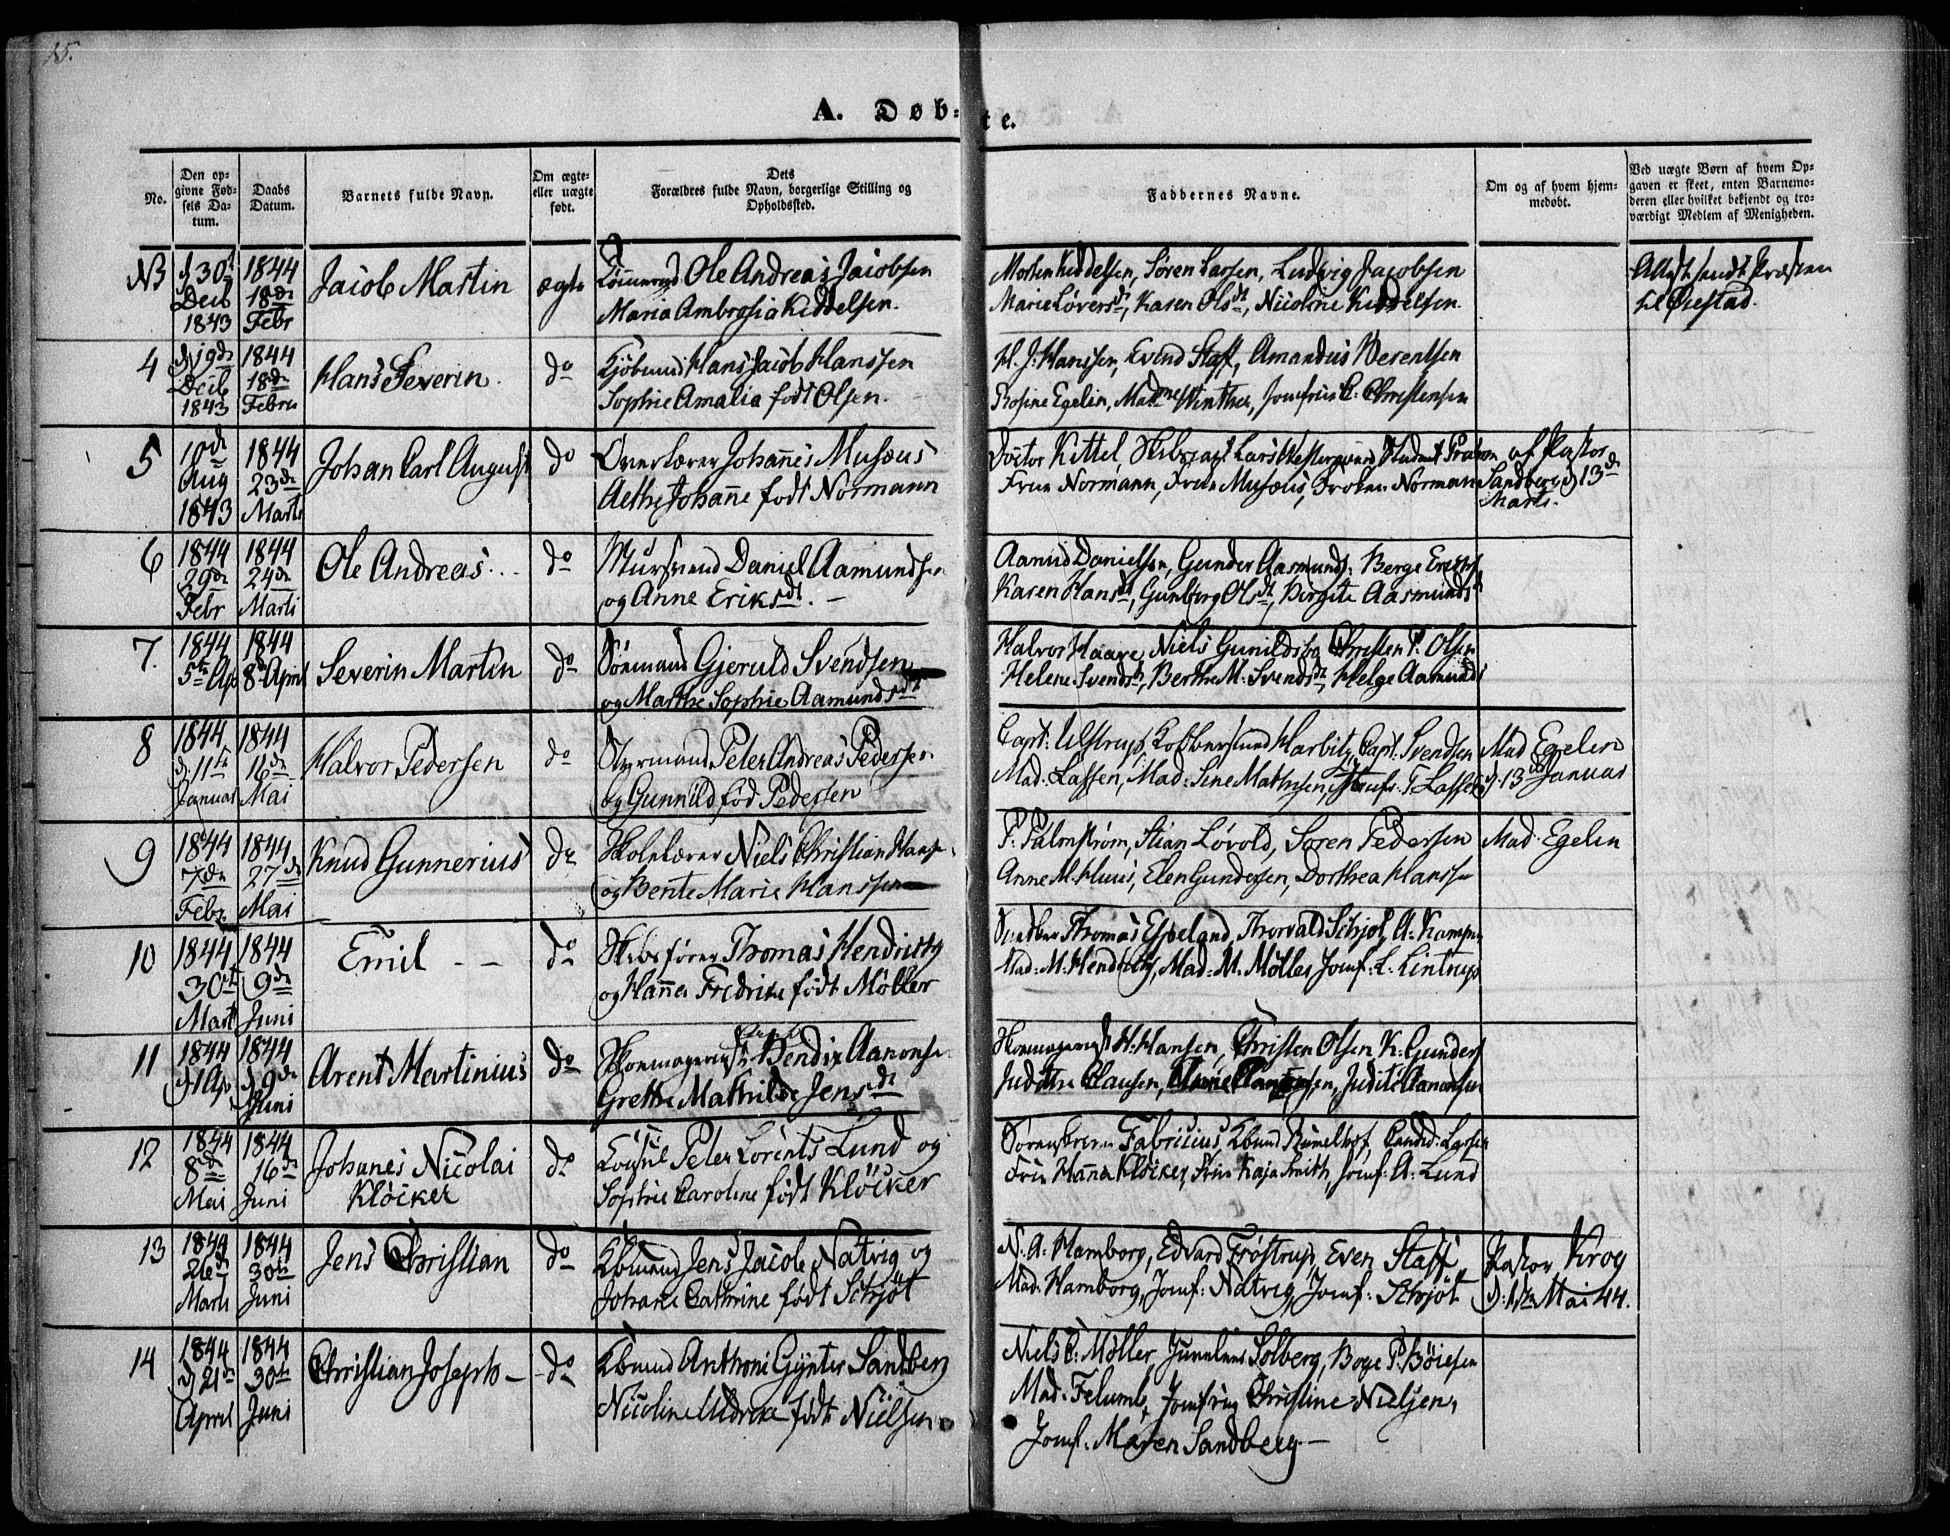 15.
A. Døb-
te.
No.
Den op-
givne Fød-
sels Da-
tum.
Daabs
Datum.
Barnets fulde Navn.
Om ægte-
eller uægte
født.
Dets
Forældres fulde Navn, borgerlige Stilling og
Opholdssted.
Faddernes Navne.
Om og af hvem hjem-
medøbt.
Ved uægte Børn af hvem Op-
gaven er skeet, enten Barnemo-
deren eller hvilket bekjendt og tro-
værdigt Medlem af Menigheden.
NB
d 30t
Decb
1843
1844
18de
Febr
Jacob Martin
ægte
Ole Andreas Jacobsen
Maria Ambrosia Kiddelsen.
Morten Kiddelsen, Søren Larsen, Ludvig Jacobsen
Marie Løversdt, Karen Olsdt, Nicoline Kiddelsen
Attest sendt Præsten
til Øiestad.
4
d 19de
Decb
1843
1844
18de
Febru
Hans Severin
do
Kjøbmd Hans Jacob Hanssen
Sophie Amalia født Olsen.
H. J. Hanssen, Evend Staff, Amandus Berentsen
Rosine Egelin, Madme Winther, Jomfrue C. Christensen
5
10de
Aug
1843
1844
23de
Marti
Johan Carl August
do
Overlærer Johannes Musæus
Johanne født Normann
Doctor Kittel, Lars Westergaard Student
Frue Normann, Frue Musæus, Frøken Normann
af Pastor
Sandberg d 13de
Marts.
6
1844
29de
Febr
1844
24de
Marti
Ole Andreas
do
Murs Daniel Aamundsen
og Anne Eriksdt.
Aamund Danielsen, Gunder Aasmunds. Berge Eriks
Karen Hansdt, Gunberg Olsdt, Birgite Aasmundsd
7.
1844
5te Ap
1844
8d April
Severin Martin
do
Sømand Gjeruld Svendsen
og Marthe Sophie Aamundsdt
Halvor Haave, Niels Gunilds Christen P. Olsen
Helene Svendsdt, Berthe M. Svendsdt, Helge Aamunds
8
1844
d 11te
Januar
1844
16de
Mai
Halvor Pedersen
do
Styrmand Peter Andreas Pedersen
og Gunnild fød Pedersen
Capt: Ulstrup, Harbitz, Capt. Svendsen
Mad: Lassen, Mad: Sine Mathisen, Jomf: T Lassen
Mad Egelin
d. 13de Januar
9
1844
7de
Febr.
1844
27de
Mai
Knud Gunnerius
do
Skolelærer Niels Christian Hans
og Bente Marie Hanssen
P. Palmstrøm, Stian Løvold, Søren Pedersen
Anne M. Huus, Elen Gundersen, Dorthea Hanss
Mad. Egelin
10
1844
30te
Mart
1844
9de
Juni
Emil
do
Skibsfører Thomas Hendricks
og Hanna Fredrike født Møller
Thomas Espeland, Thorvald Schjøt, A. Kamp
Mad: M. Hendricks, Mad: M. Møller, Jomf: L. Lintrup
11
1844
d 1 Ap
1844
d 9de
Juni
Arent Martinius
do
Skomagersv Bendix Aanonsen
Grethe Mathilde Jensdt
Skomagersv H. Hansen, Christen Olsen, K. Gunders
Judithe Clausen, Judit Aanonsen
12
1844
8de
Mai
1844
16de
Juni
Johanes Nicolai
Kløcker
do
Consul Peter Lorents Lund og
Sophie Caroline født Kløcker
Sørenskriver Fabricius, Kbmd Rømelhof, Candid: Larsen
Frue Hanna Kløcker, Frue Kaja Smith, Jomf: A: Lund
13
1844
26de
Marti
1844
30te
Juni
Jens Christian
do
Kbmand Jens Jacob Natvig og
Johane Cathrine født Schjøt
N. A: Hamborg, Edvard Frøstrup, Even Staff,
Mad: Hamborg, Jomf: Natvig, Jomf: Schjøt
Pastor Krog
d. Mai 44.
14
1844
d 21de
April
1844
30te
Juni
Christian Joseph
do
Kbmand Anthoni Gynter Sandberg
Nicoline Uldrike født Nielsen
Niels C. Møller, Juveleer Solberg, Boye P. Bøiesen
Mad: Felumb, Jomfrue Christine Nielsen,
Jomf. Maren Sandberg